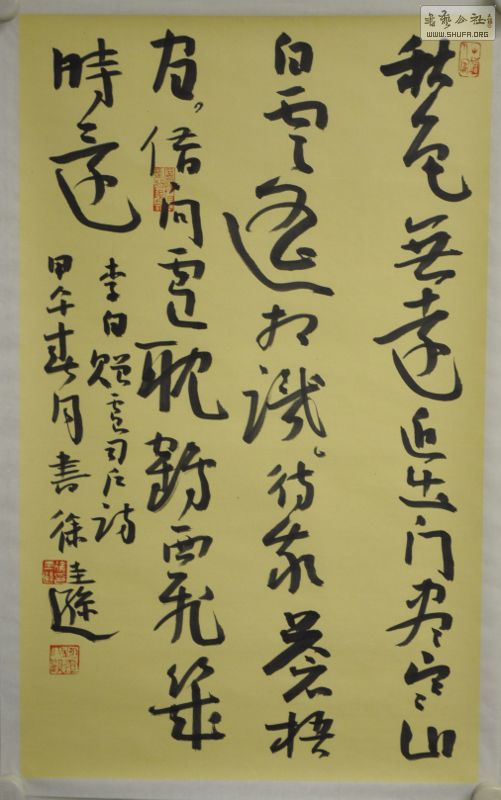 秋色無遠近出门尽寒山
白雲遥相識待我蒼梧
间借问盧耽鶴西飛幾
時還
李白贈盧司户詩
甲午春月書徐圭遜
書藝公社
WWW.SHUFA.ORG